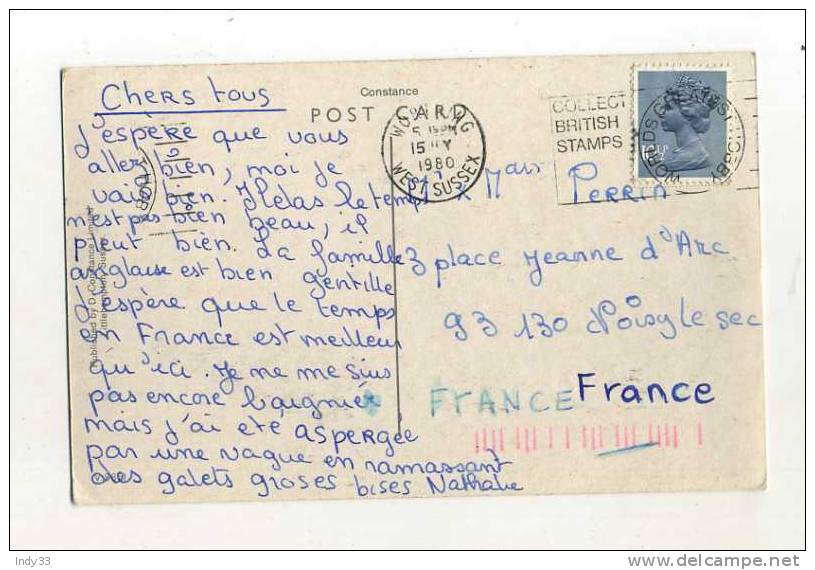 Constance
POST CARD
Chers tous
J'espère que vous
allez bien, moi je
vais bien. Hélas le temps
n'est pas bien beau, il
pleut bien. La famille
anglaise est bien gentille
J'espère que le temps
en France est meilleur
qu'ici. Je me me suis
pas encore baignée
mais j'ai été aspergée
par une vague en ramassant
des galets groses bises Nathalie
WORTHING
15
1980
WEST SUSSEX
COLLECT
BRITISH
STAMPS
Perrin
3 place Jeanne d'Arc
93 130 Noisy le sec
FRANCE France
Published by D. Constance Limited
Littlehampton, Sussex
Indy33
www.delcampe.net